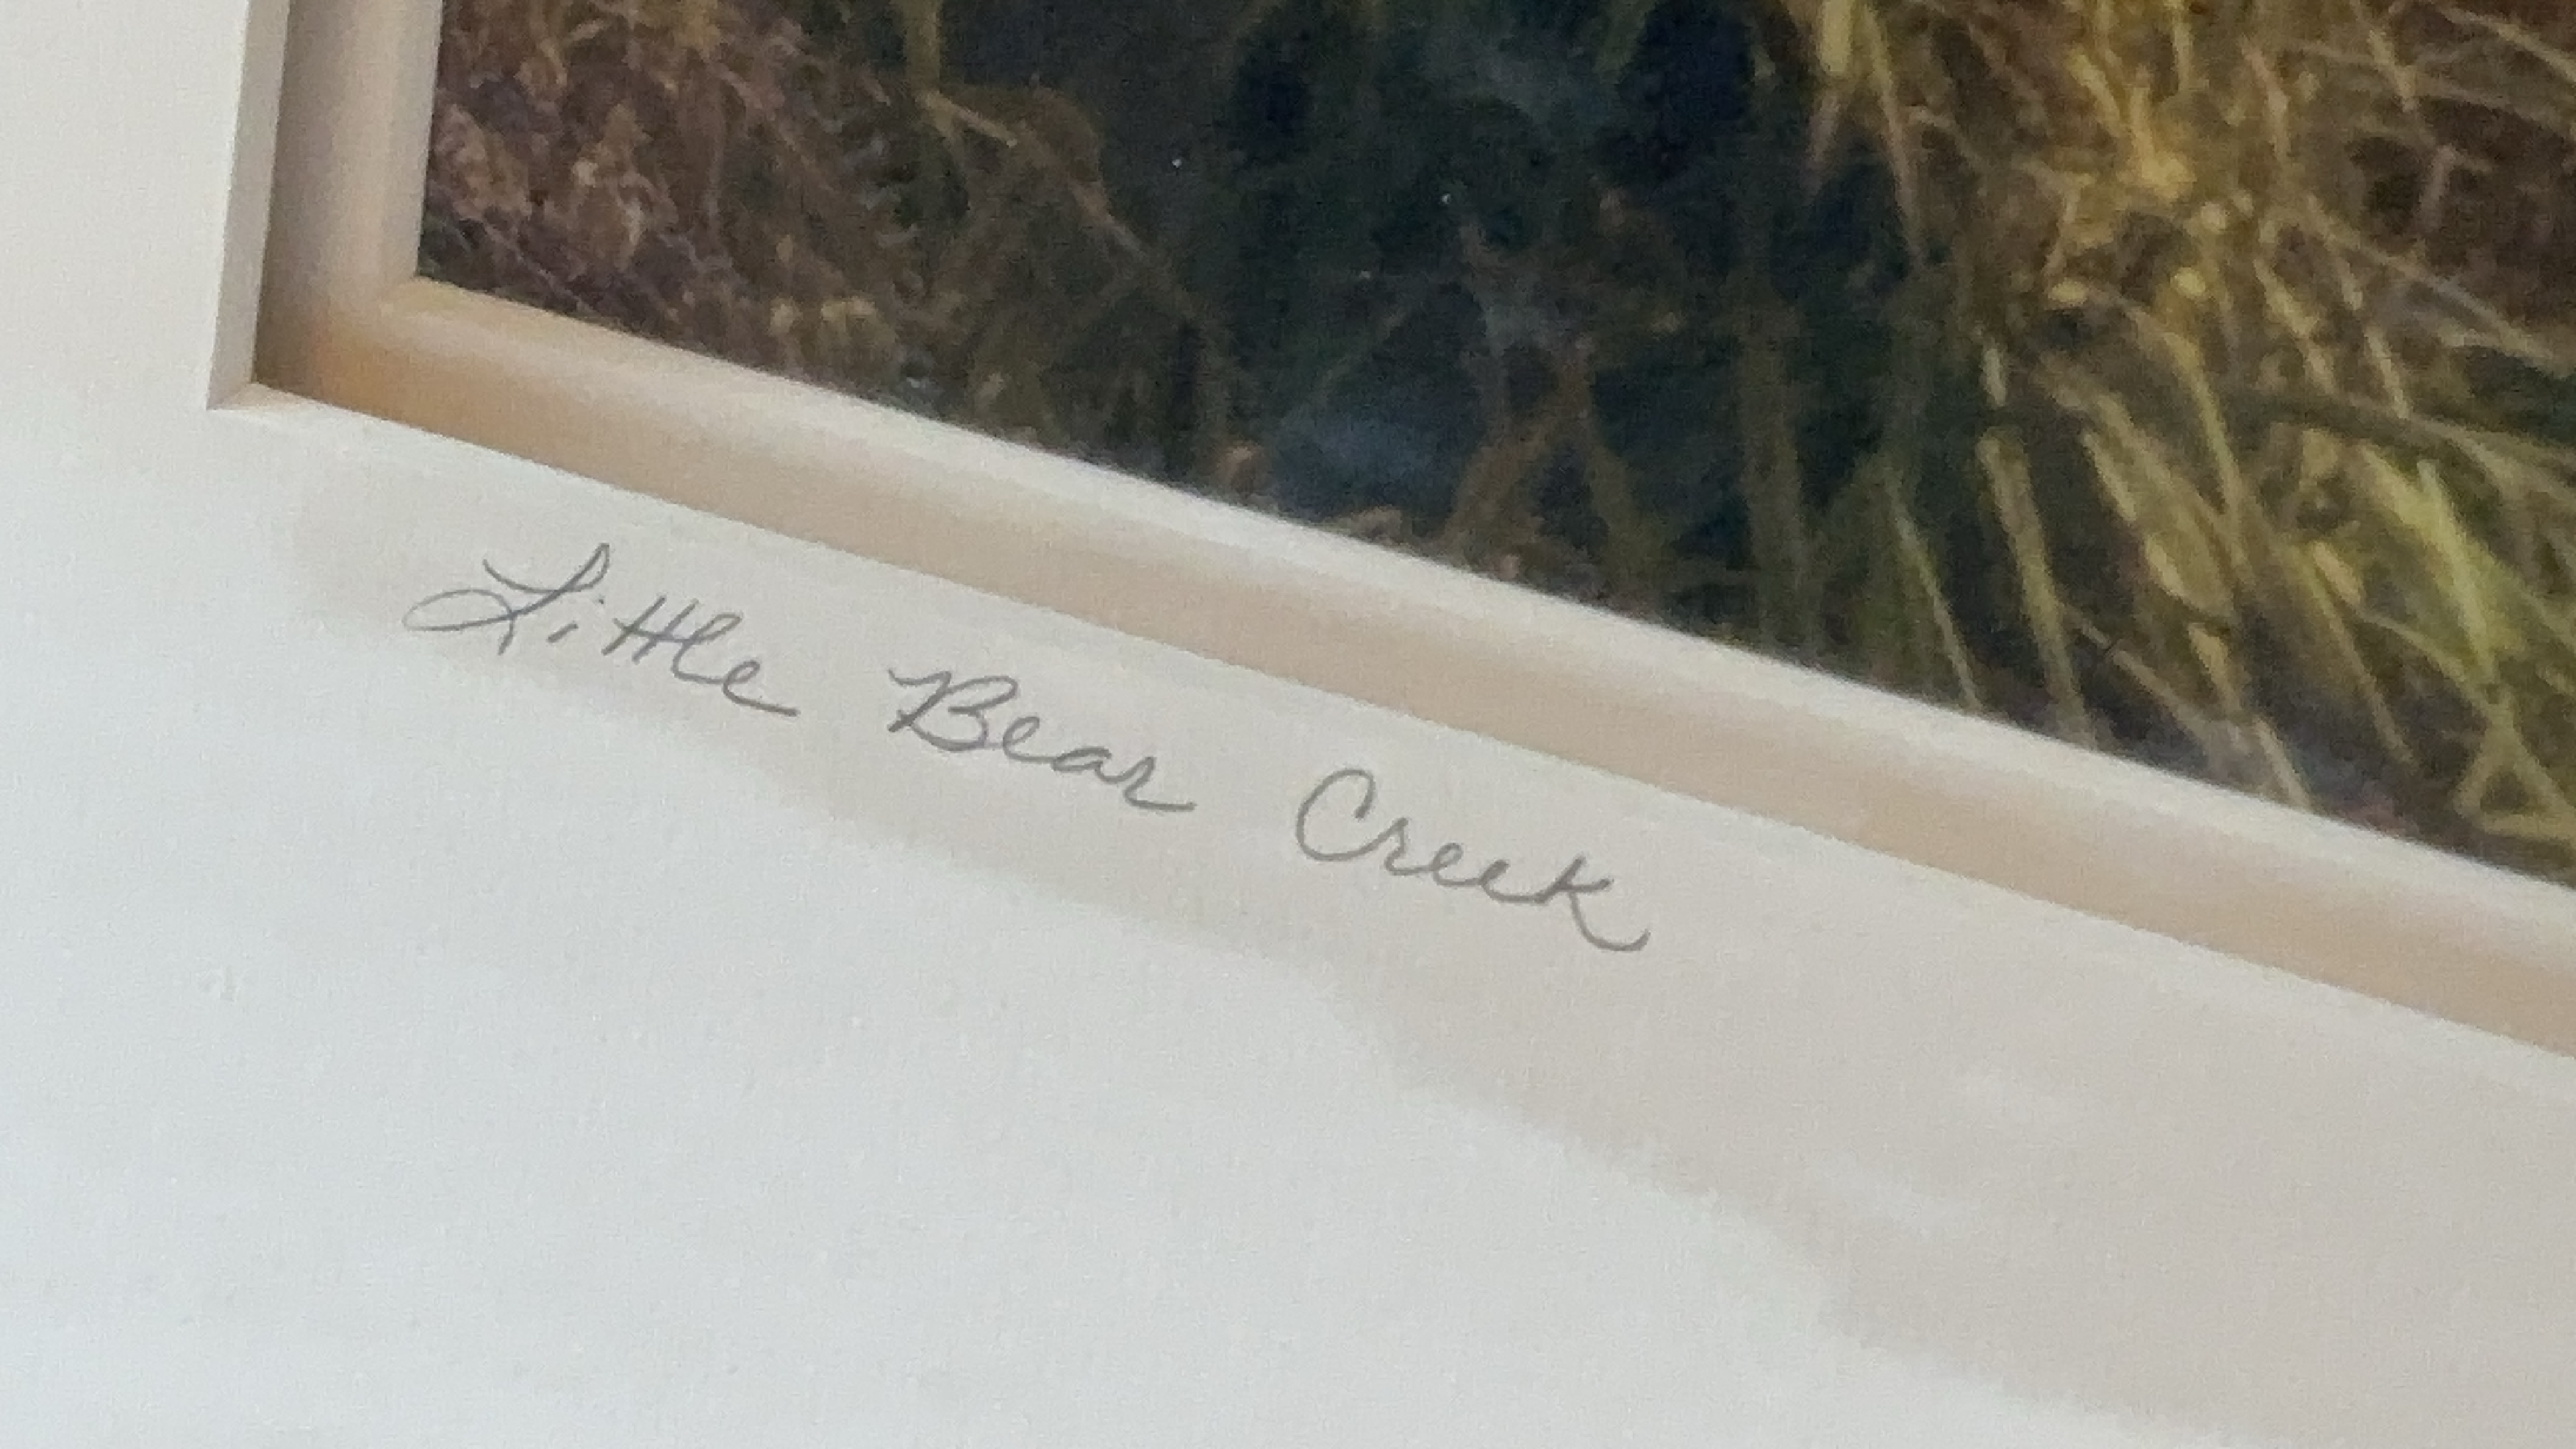 Little Bear Creek